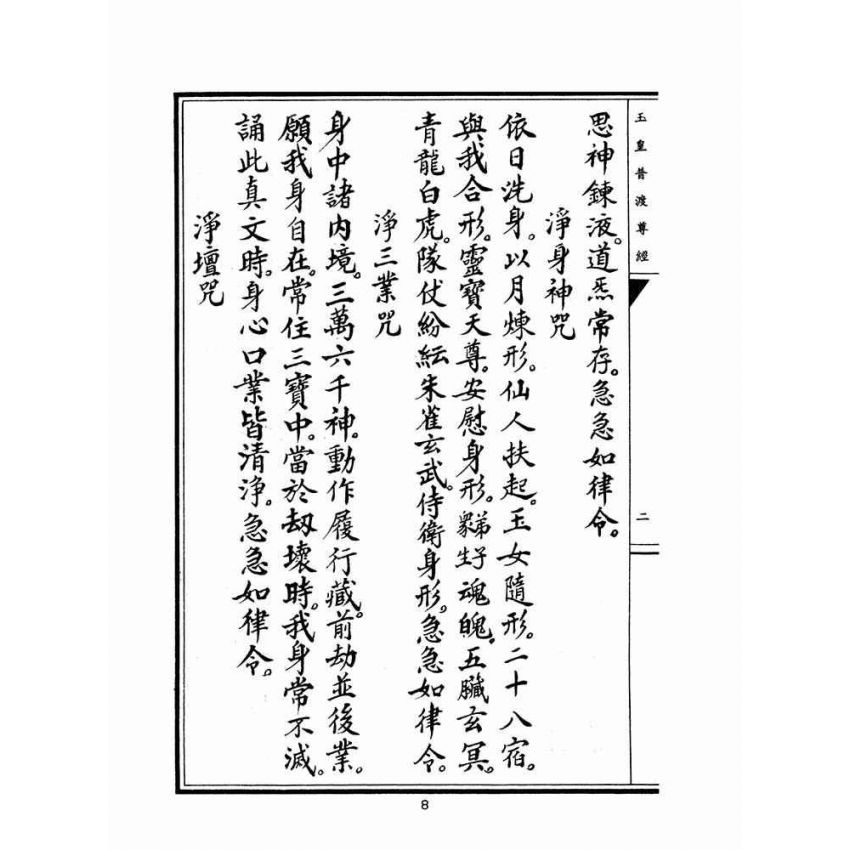 玉皇普渡尊經
二
思神鍊液。道炁常存。急急如律令。
淨身神咒
依日洗身。以月煉形。仙人扶起。玉女隨形。二十八宿。
與我合形。靈寶天尊。安慰身形。弟子魂魄。五臟玄冥。
青龍白虎。隊仗紛紜朱雀玄武。侍衛身形。急急如律令。
淨三業咒
身中諸內境。三萬六千神。動作履行藏。前劫並後業。
願我身自在。常住三寶中。當於劫壞時。我身常不滅。
誦此真文時。身心口業皆清淨。急急如律令。
淨壇咒
8